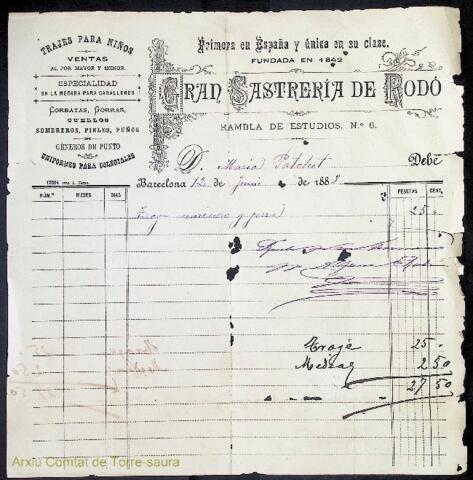 TRAJES PARA NIÑOS
VENTAS
AL POR MAYOR Y MENOR
ESPECIALIDAD
EN LA MEDIDA PARA CABALLEROS
CORBATAS, GORRAS,
CUELLOS
SOMBREROS, PIELES, PUÑOS
GÉNEROS DE PUNTO
UNIFORMES PARA COLEGIALES
Primera en España y única en su clase.
FUNDADA EN 1842
GRAN SASTRERÍA DE RODÓ
RAMBLA DE ESTUDIOS, N.º 6.
D. Debe
Barcelona 12 de junio de 1888
NÚM.º MESES DIAS PESETAS CENT.
marinero y gorra 25
Traje 25
Medias 2 50
27 50
Arxiu Comtat de Torre-saura